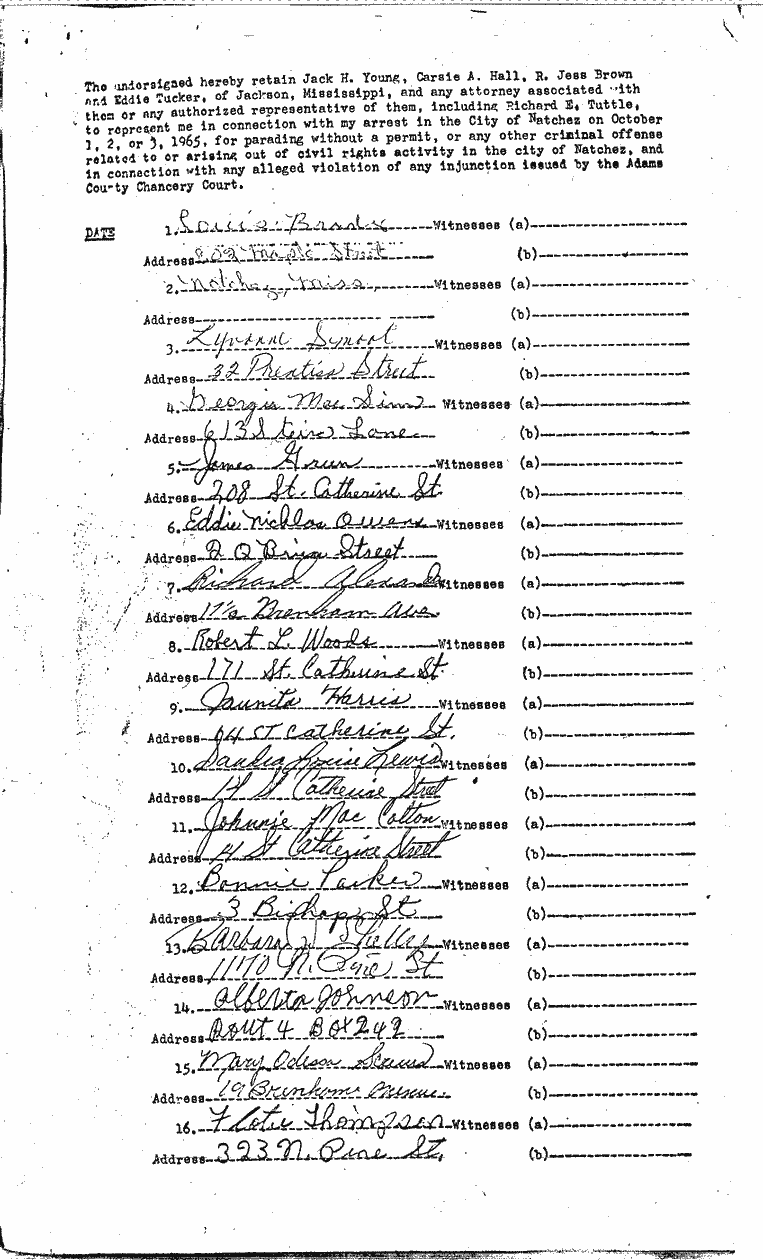 The undersigned hereby retain Jack H. Young, Carsie A. Hall, R. Jess Brown
and Eddie Tucker, of Jackson, Mississippi, and any attorney associated with
them or any authorized representative of them, including Richard E. Tuttle,
to represent me in connection with my arrest in the City of Natchez on October
1, 2, or 3, 1965, for parading without a permit, or any other criminal offense
related to or arising out of civil rights activity in the city of Natchez, and
in connection with any alleged violation of any injunction issued by the Adams
County Chancery Court.
DATE 1. Louis Witnesses (a)
Address 202 Maple Street (b)
2. Natchez, Miss, Witnesses (a)
Address (b)
3. Witnesses (a)
Address 32 Prentiss Street (b)
4. Georgia Mae Sims Witnesses (a)
Address 613 Lane (b)
5. James Green Witnesses (a)
Address 208 St. Catherine St. (b)
6. Eddie Nichlas Owens Witnesses (a)
Address Street (b)
7. Richard Witnesses (a)
Address Brenham Ave. (b)
8. Robert L. Woods Witnesses (a)
Address 171 St. Catherine St (b)
9. Jaunita Harris Witnesses (a)
Address ST Catherine St. (b)
10. Louise Lewis Witnesses (a)
Address 14 St Catherine Street (b)
11. Johnnie Mae Cotton Witnesses (a)
Address 14 St Catherine Street (b)
12. Bonnie Parker Witnesses (a)
Address 3 Bishop St (b)
13. Barbara Witnesses (a)
Address N. Pine St (b)
14. Alberta Johnson Witnesses (a)
Address Rout 4 Box 242 (b)
15. Mary Odessa Witnesses (a)
Address 19 (b)
16. Flotie Thompson Witnesses (a)
Address 323 N. Pine St. (b)